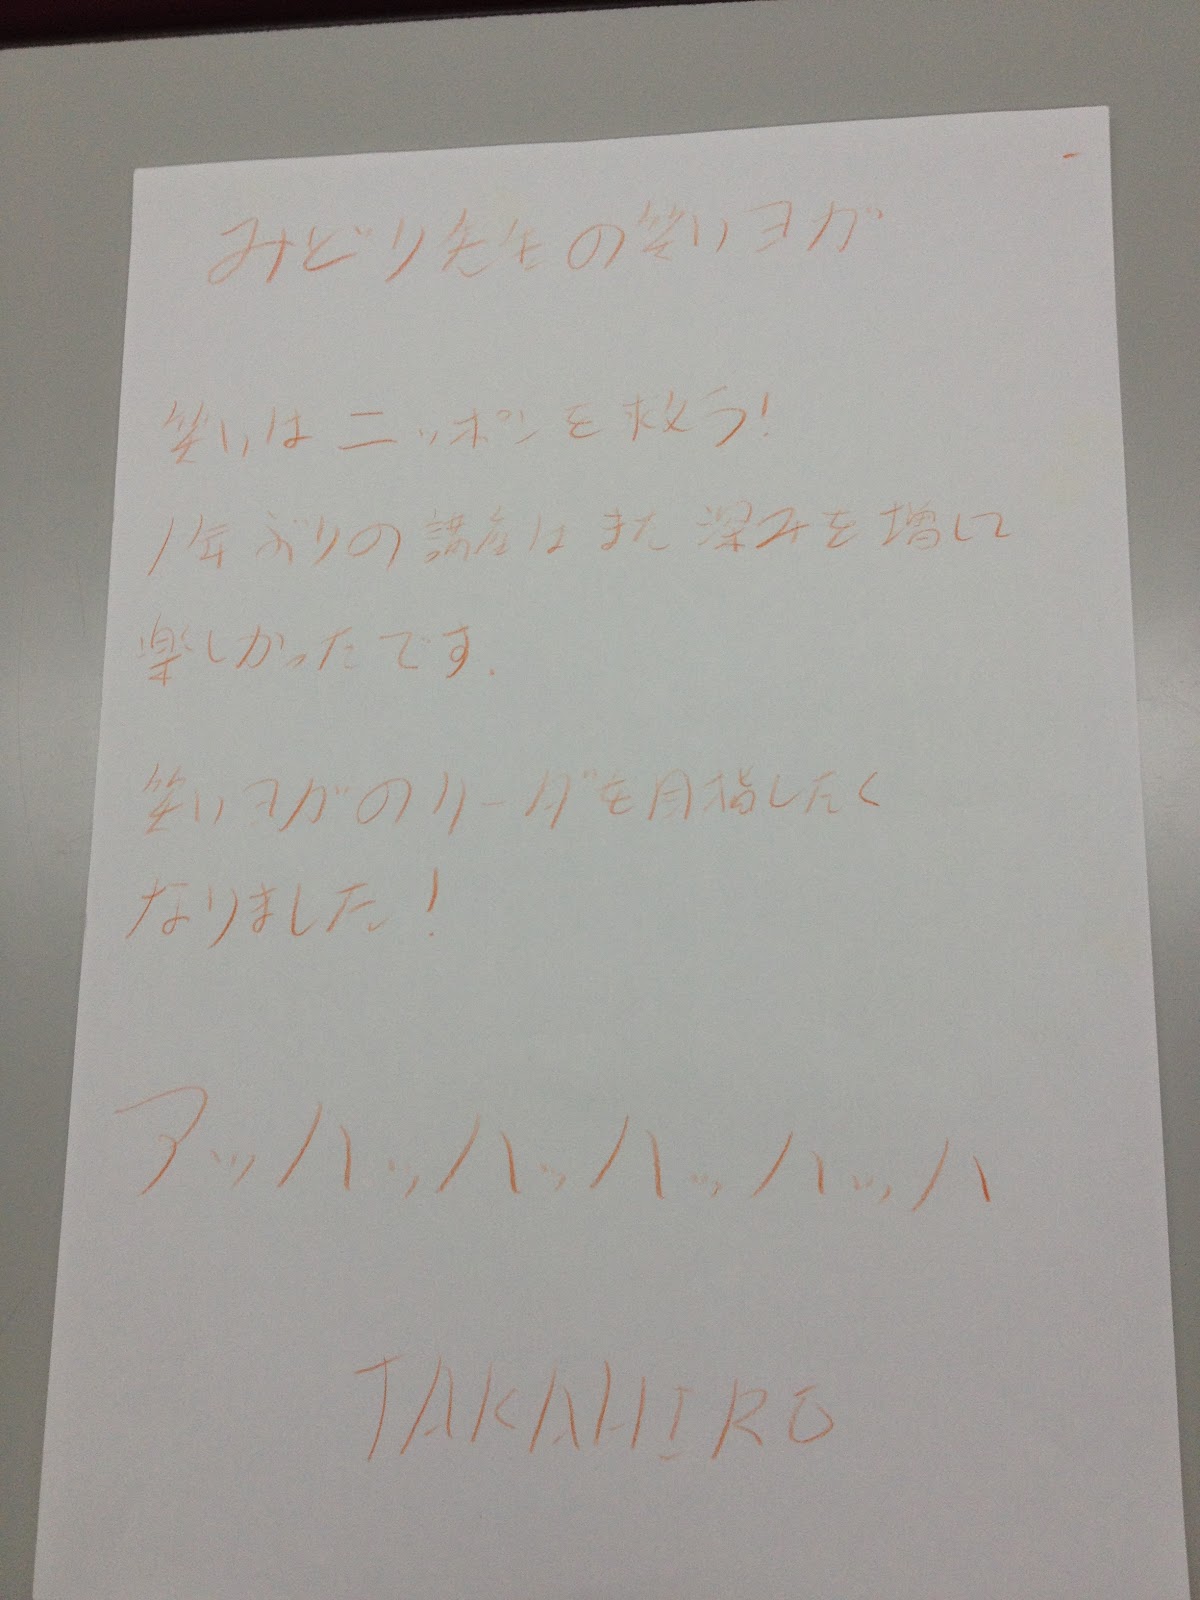 みどり先生の笑いヨガ
笑いはニッポンを救う!
1年ぶりの講座はまた深みを増して
楽しかったです.
笑いヨガのリーダを目指したく
なりました!
アッハッハッハッハッハ
TAKAHIRO